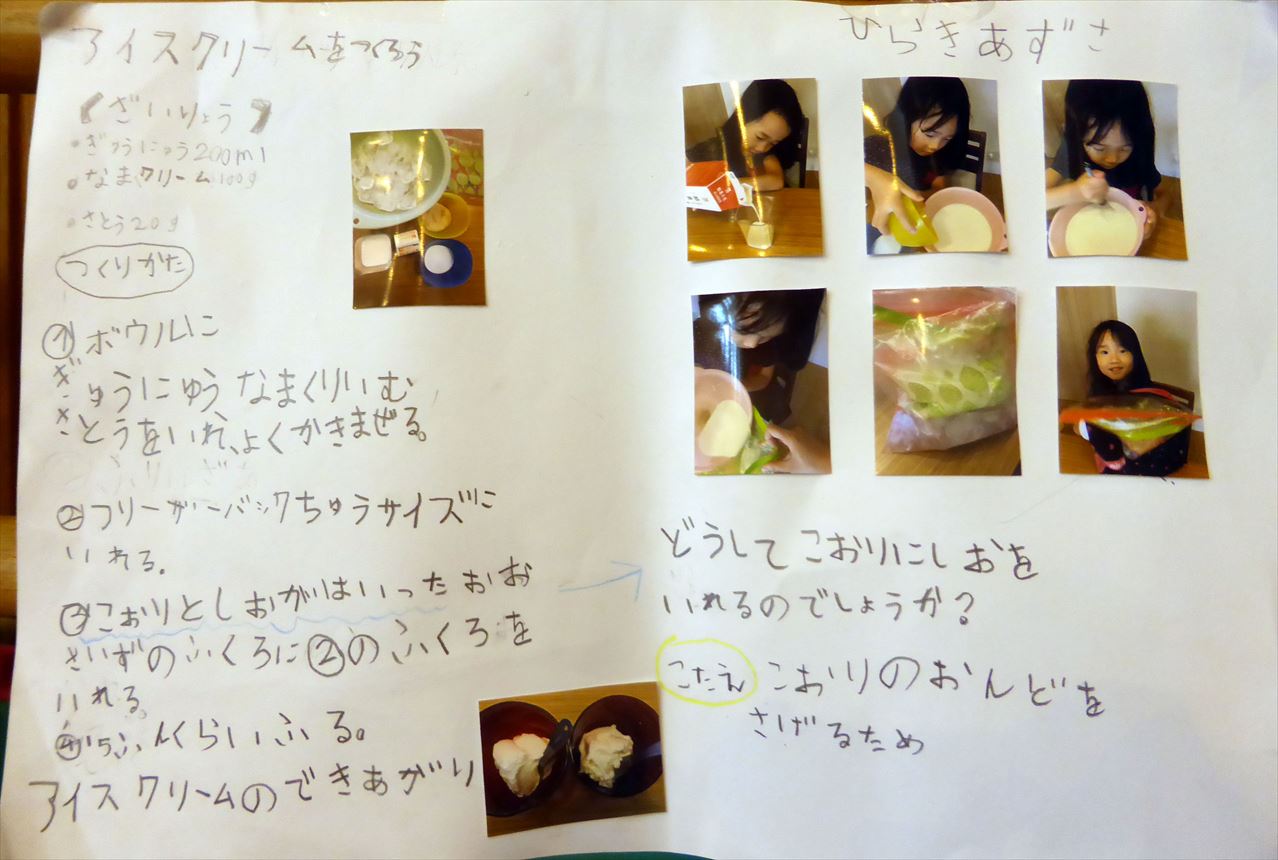 アイスクリームをつくろう
ざいりょう
・ぎゅうにゅう200ml
・なまクリーム100g
・さとう20g
つくりかた
①ボウルに
ぎゅうにゅう なまくりいむ
さとうをいれ、よくかきまぜる。
②フリーザーバックちゅうサイズに
いれる。
③こおりとしおがはいったおお
さいずのふくろに②のふくろを
いれる。
ふんくらいふる。
アイスクリームのできあがり
ひらきあずさ
どうしてこおりにしおを
いれるのでしょうか?
こたえ こおりのおんどを
さげるため